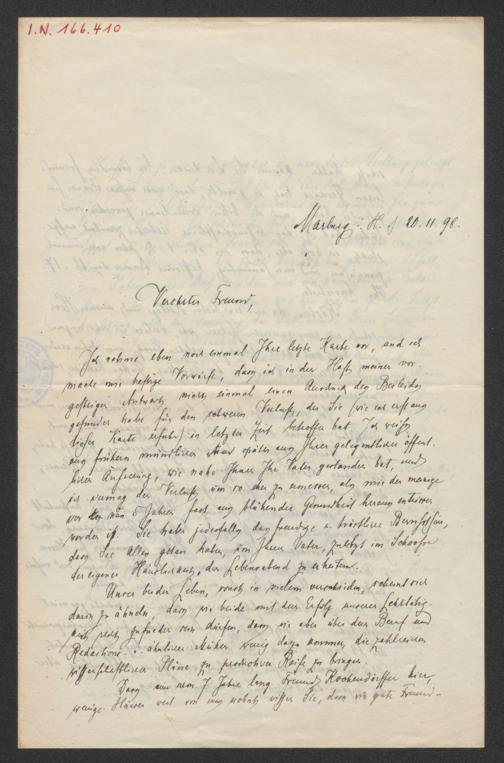 I.N. 166.410
Marburg i. H. 20.11.98.
Verehrter Freund,
Ich nehme eben noch einmal Ihre letzte Karte vor, und ich
mache mir heftige Vorwürfe, dass ich in der Hast meiner vor
gestrigen Antwort nicht einmal einen Ausdruck des Beileides
gefunden habe für den schweren Verlust, der Sie (wie ich erst aus
dieser Karte erfuhr) in letzter Zeit betroffen hat. Ich weiss
aus frühern mündlichen und später aus Ihrer gelegentlichen
Äusserung, wie nahe Ihnen Ihr Vater gestanden hat, und
ich vermag den Verlust um so eher zu ermessen, als mir der meinige
vor nun 5 Jahren fast aus blühender Gesundheit heraus entrissen
worden ist. Sie haben jedenfalls das freudige u. tröstliche Bewusstsein,
dass Sie alles getan haben, um Ihrem Vater zuletzt im Schoosse
der eigenen Häuslichkeit den Lebensabend zu erheitern.
Unser beider Leben, sonst in vielem verschieden, scheint mir
darin zu ähneln, dass wir beide mit dem Erfolg unserer Lehrtätig-
keit recht zufrieden sein dürfen, dass wir aber über den Beruf und
Redactions- u. ähnlichen wenig dazu kommen, die zahlreichen
wissenschaftlichen Pläne zu Reife zu bringen.
Dass nun 7 Jahre lang Freund Kochendörffer hier,
wenige Häuser weit von uns wohnt, wissen Sie, dass wir gute Freund-